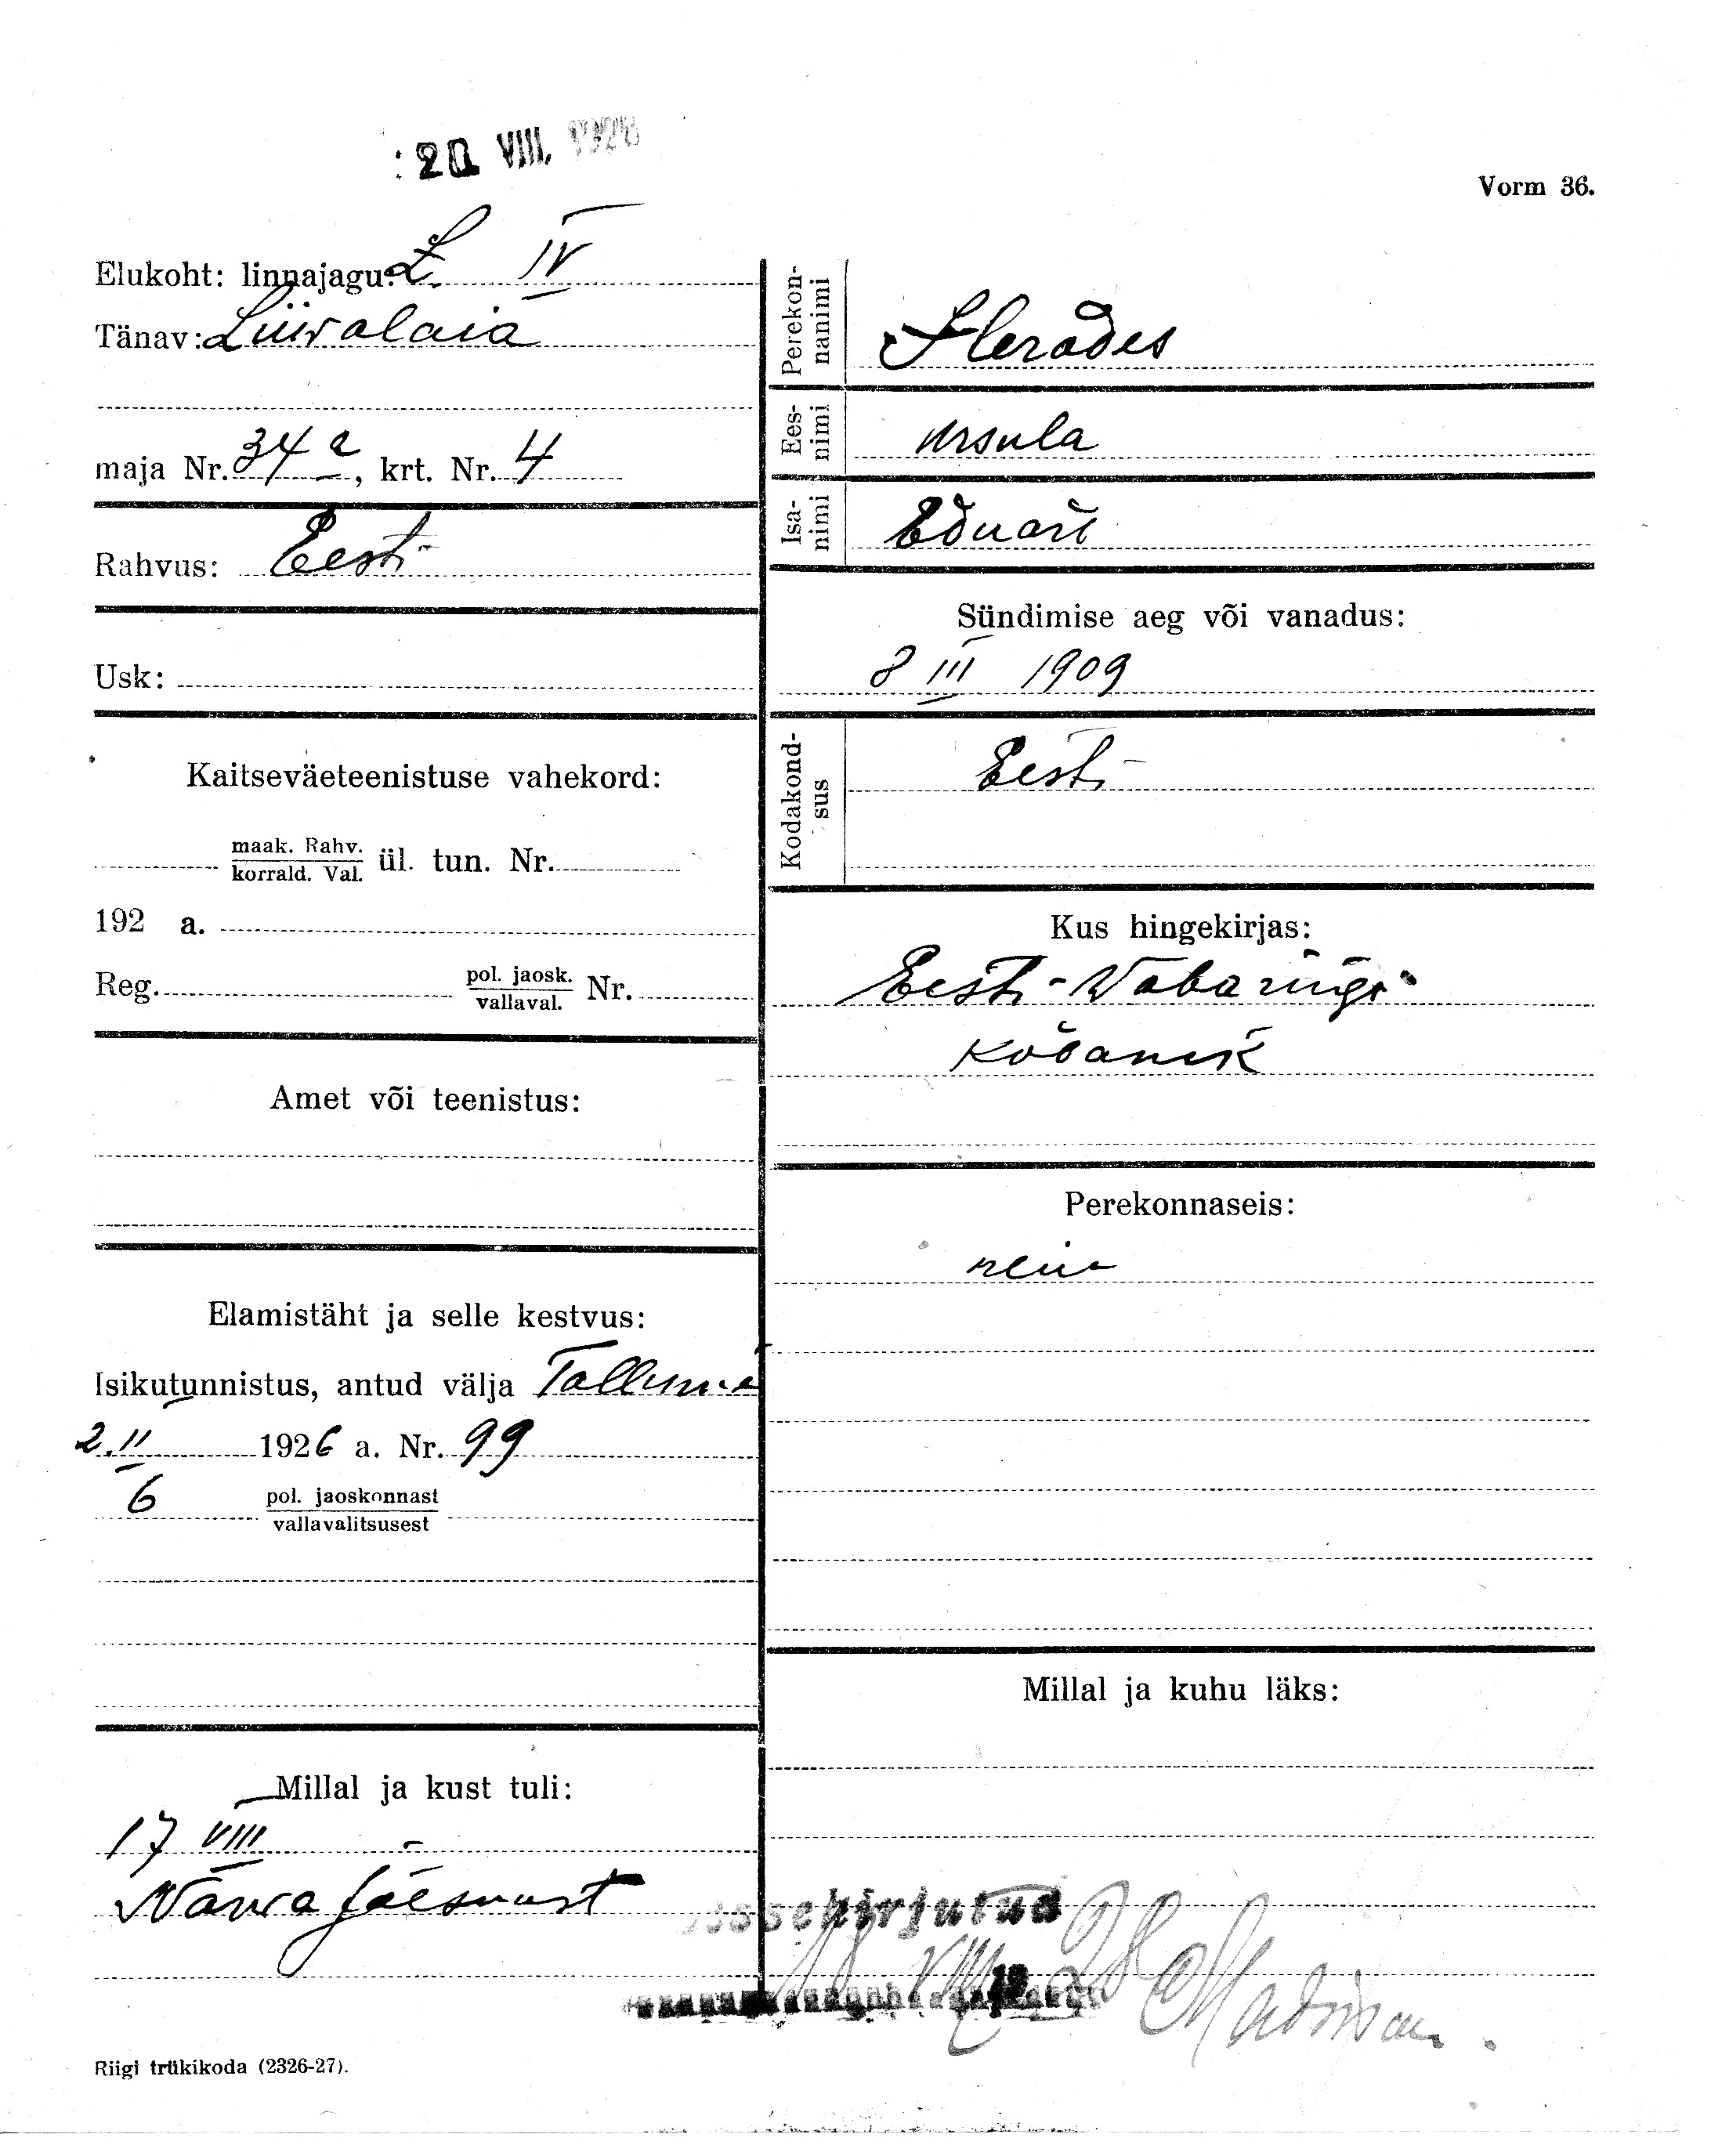 20 VIII. 1928
Vorm 36.
Elukoht: linnajagu: L. IV
Tänav: Liivalaia
maja Nr. 34 a, krt. Nr. 4
Rahvus: Eesti
Usk:
Kaitseväeteenistuse vahekord:
maak. Rahv.
korrald. Val.
ül. tun. Nr.
192 a.
Reg. pol. jaosk.
vallaval. Nr.
Amet või teenistus:
Elamistäht ja selle kestvus:
Isikutunnistus, antud välja Tallinna
2. II 1926 a. Nr. 99
6 pol. jaoskonnast
vallavalitsusest
Millal ja kust tuli:
17 VIII
Narva Jõesuust
Riigi trükikoda (2326-27).
Perekon-
nanimi
Herodes
Ees-
nimi
Ursula
Isa-
nimi
Eduard
Sündimise aeg või vanadus:
8 III 1909
Kodakond-
sus
Eesti
Kus hingekirjas:
Eesti-Wabariigi
kodanik
Perekonnaseis:
neiu
Millal ja kuhu läks:
Sissekirjutud
VIII 28